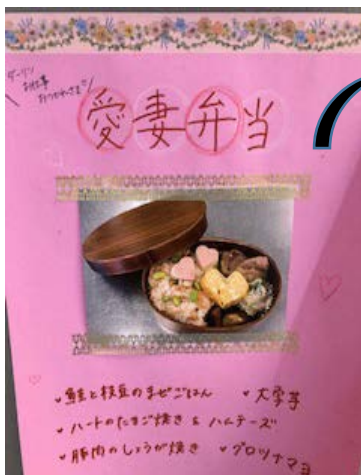 ダーリン
お仕事
おつかれさま♡
愛妻弁当
・鮭と枝豆のまぜごはん ・大学芋
・ハートのたまご焼き & ハムチーズ
・豚肉のしょうが焼き ・ブロッコリーツナマヨ